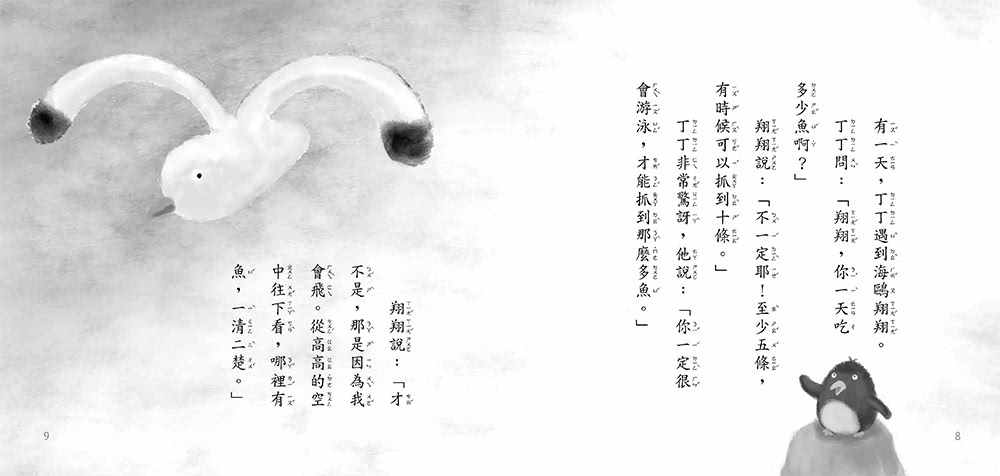 有一天，丁丁遇到海鷗翔翔。
丁丁問：「翔翔，你一天吃
多少魚啊？」
翔翔說：「不一定耶！至少五條，
有時候可以抓到十條。」
丁丁非常驚訝，他說：「你一定很
會游泳，才能抓到那麼多魚。」
8
翔翔說：「才
不是，那是因為我
會飛。從高高的空
中往下看，哪裡有
魚，一清二楚。」
9